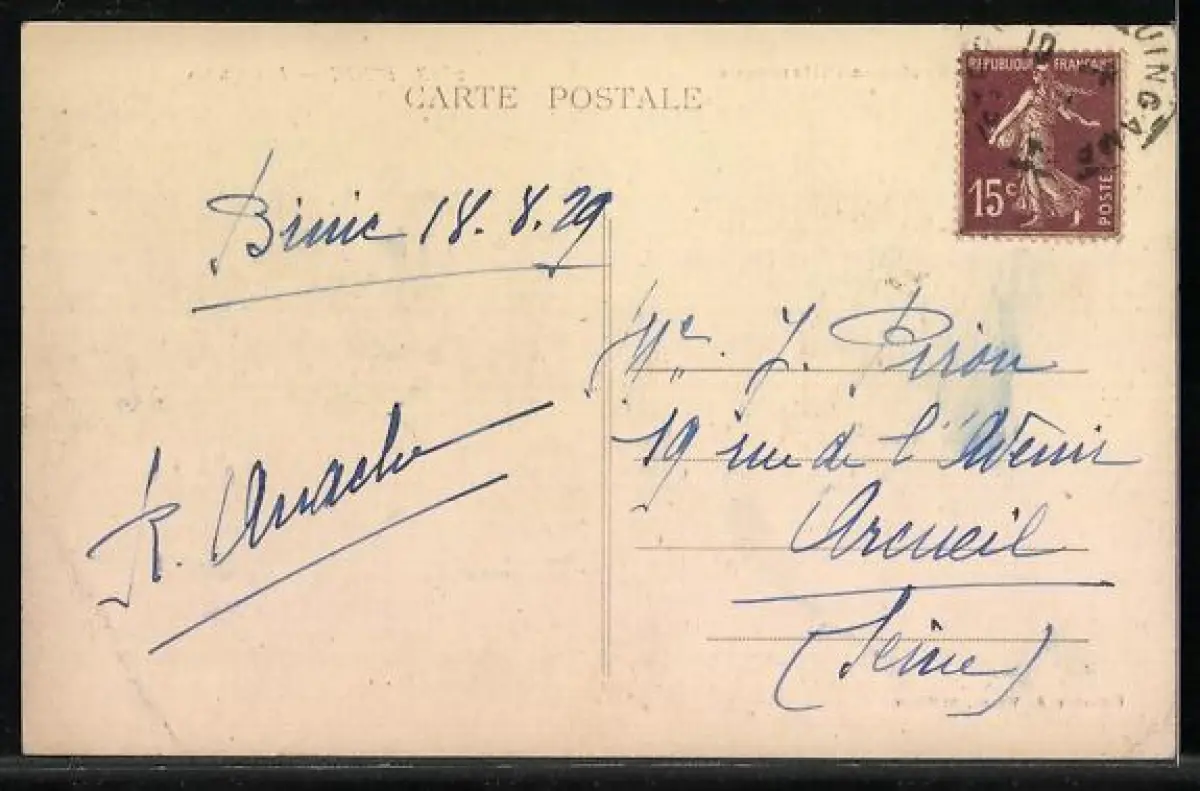 CARTE POSTALE
RÉPUBLIQUE FRANÇAISE
15c
POSTES
Binic 18.8.29
Me J. Piron
19 rue de l'Avenir
Arcueil
(Seine)
R.